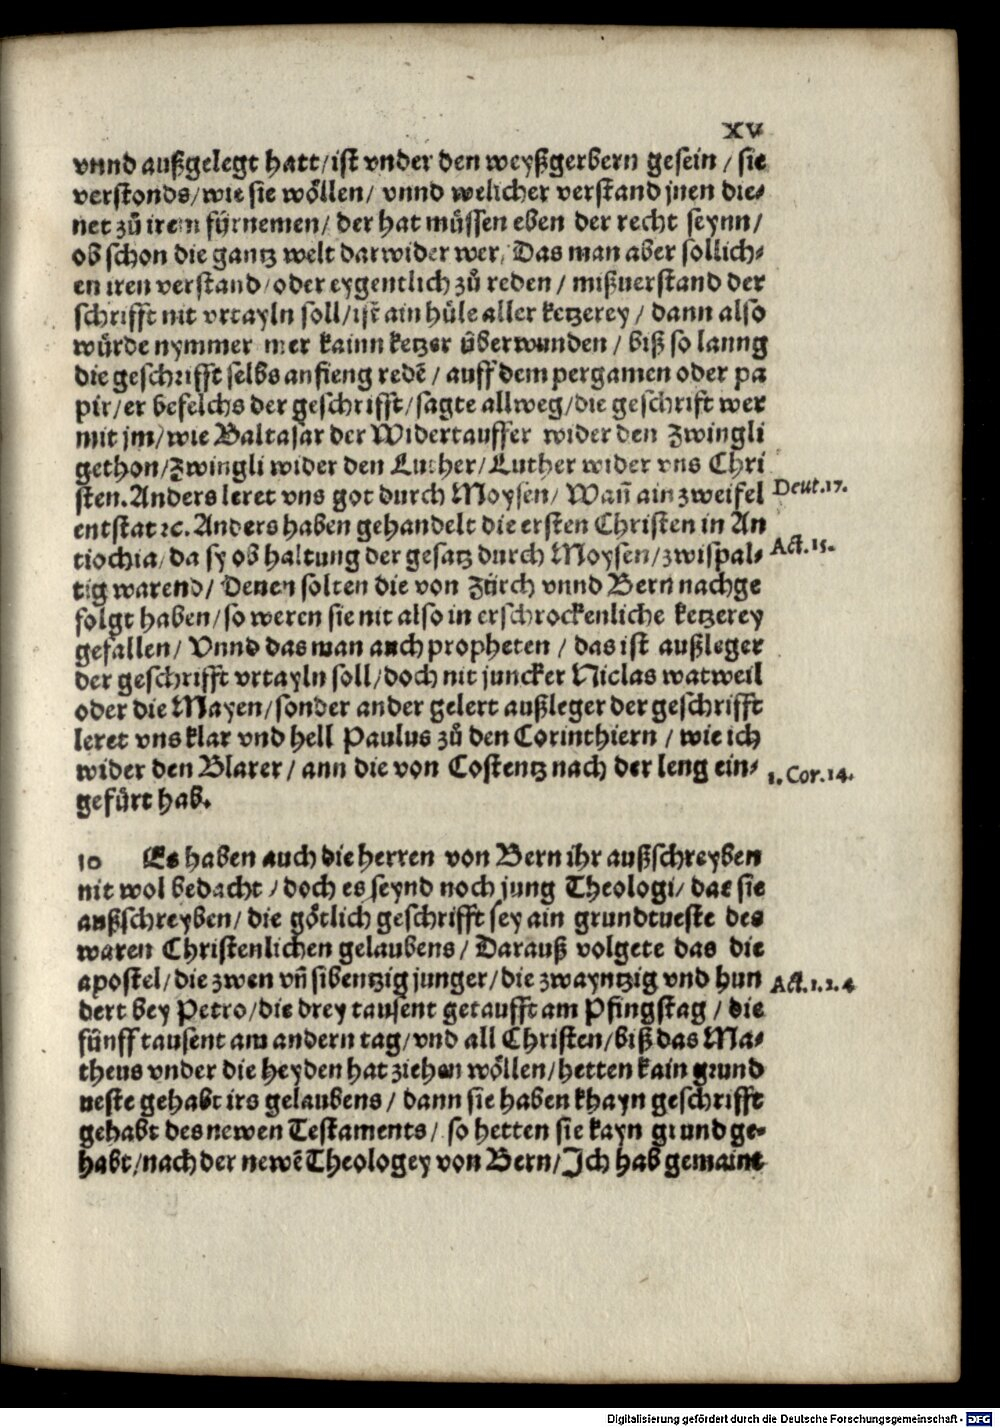 XV
vnnd außgelegt hatt/ist vnder den weyßgerbern gesein / sie
verstonds/wie sie wöllen/ vnnd welicher verstand jnen die⸗
net zů irem fürnemen/ der hat müssen eben der recht seynn/
ob schon die gantz welt darwider wer/ Das man aber sollich⸗
en iren verstand/oder eygentlich zů reden / mißuerstand der
schrifft nit vrtayln soll/ist ain hüle aller ketzerey / dann also
würde nymmer mer kainn ketzer überwunden / biß so lanng
die geschrifft selbs anfieng redē / auff dem pergamen oder pa
pir/er befelchs der geschrifft/sagte allweg/die geschrift wer
mit jm/wie Baltasar der Widertauffer wider den Zwingli
gethon/Zwingli wider den Luther/Luther wider vns Chri
sten.Anders leret vns got durch Moysen/ Wañ ain zweifel Deut.17.
entstat ꝛc.Anders haben gehandelt die ersten Christen in An
tiochia/da sy ob haltung der gesatz durch Moysen/zwispal⸗ Act.15.
tig warend/ Denen solten die von Zürch vnnd Bern nachge
folgt haben/so weren sie nit also in erschrockenliche ketzerey
gefallen/ Vnnd das man auch propheten / das ist außleger
der geschrifft vrtayln soll/doch nit juncker Niclas watweil
oder die Mayen/sonder ander gelert außleger der geschrifft
leret vns klar vnd hell Paulus zů den Corinthiern / wie ich
wider den Blarer/ ann die von Costentz nach der leng ein⸗ 1.Cor.14.
gefürt hab.
10 Es haben auch die herren von Bern ihr außschreyben
nit wol bedacht / doch es seynd noch jung Theologi/ das sie
außschreyben/ die götlich geschrifft sey ain grundtueste des
waren Christenlichen gelaubens/ Darauß volgete das die
apostel/die zwen vñ sibentzig junger/die zwayntzig vnd hun Act.1.2.4
dert bey Petro/die drey tausent getaufft am Pfingstag / die
fünff tausent am andern tag/vnd all Christen/biß das Ma⸗
theus vnder die heyden hat ziehen wöllen/hetten kain grund
ueste gehabt irs gelaubens/ dann sie haben khayn geschrifft
gehabt des newen Testaments/ so hetten sie kayn grund ge⸗
habt/nach der newē Theologey von Bern/Ich hab gemaint
Digitalisierung gefördert durch die Deutsche Forschungsgemeinschaft - DFG